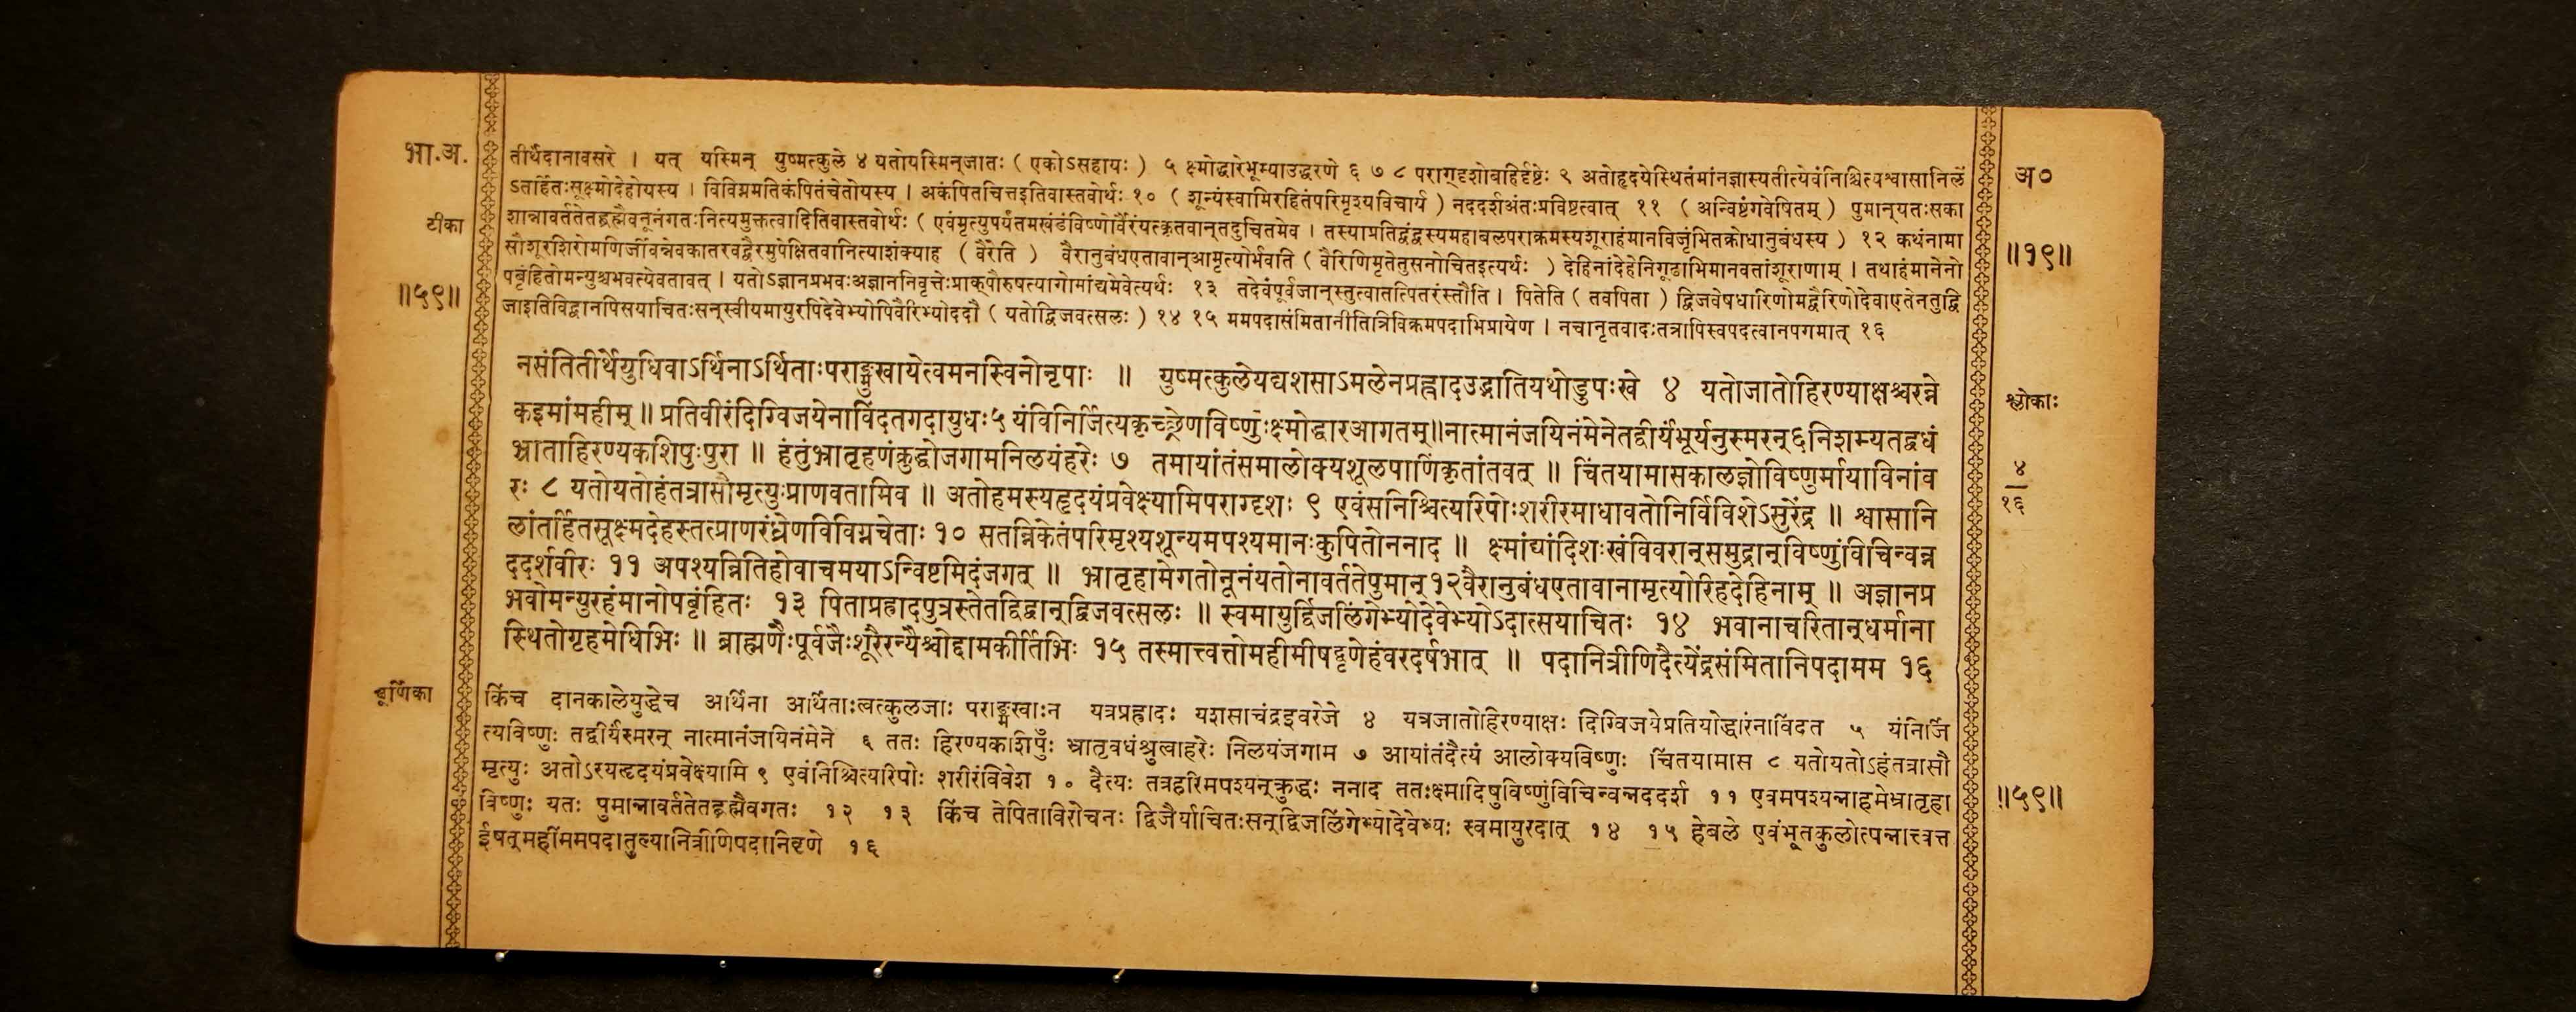 भा.अ.
तीर्थेदानावसरे । यत् यस्मिन् युष्मत्कुले ४ यतोयस्मिन्जातः ( एकोऽसहायः ) ५ क्ष्मोद्धारेभूम्याउद्धरणे ६ ७ ८ पराग्दृशोबहिर्दृष्टेः ९ अतोहृदयेस्थितंमांनज्ञास्यतीत्येवंनिश्चित्यश्वासानिलें
अ०
ऽतर्हितःसूक्ष्मोदेहोयस्य । विविग्नमतिकंपितंचेतोयस्य । अकंपितचित्तइतिवास्तवोर्थः १० ( शून्यंस्वामिरहितंपरिमृश्यविचार्य ) नददर्शअंतःप्रविष्टत्वात् ११ ( अन्विष्टंगवेषितम् ) पुमान्यतःसका
टीका
शान्नावर्ततेतद्ब्रह्मैवनूनंगतःनित्यमुक्तत्वादितिवास्तवोर्थः ( एवंमृत्युपर्यंतमखंडंविष्णोर्वैरंयत्कृतवान्तदुचितमेव । तस्याप्रतिद्वंद्वस्यमहाबलपराक्रमस्यशूराहंमानविजृंभितक्रोधानुबंधस्य ) १२ कथंनामा
सौशूरशिरोमणिर्जीवन्नेवकातरवद्वैरमुपेक्षितवानित्याशंक्याह ( वैरेति ) वैरानुबंधएतावान्आमृत्योर्भवति ( वैरिणिमृतेतुसनोचितइत्यर्थः ) देहिनांदेहेनिगूढाभिमानवतांशूराणाम् । तथाहंमानेनो
॥१९॥
पबृंहितोमन्युश्चभवत्येवतावत् । यतोऽज्ञानप्रभवःअज्ञाननिवृत्तेःप्राक्पौरुषत्यागोमांद्यमेवेत्यर्थः १३ तदेवंपूर्वजान्स्तुत्वातत्पितरंस्तौति । पितेति ( तवपिता ) द्विजवेषधारिणोमद्वैरिणोदेवाएतेनतुद्वि
॥५९॥
जाइतिविद्वानपिसयाचितःसन्स्वीयमायुरपिदेवेभ्योपिवैरिभ्योददौ ( यतोद्विजवत्सलः ) १४ १५ ममपदासंमितानीतित्रिविक्रमपदाभिप्रायेण । नचानृतवादःतत्रापिस्वपदत्वानपगमात् १६
नसंतितीर्थेयुधिवाऽर्थिनाऽर्थिताःपराङ्मुखायेत्वमनस्विनोनृपाः ॥ युष्मत्कुलेयद्यशसाऽमलेनप्रह्लादउद्भातियथोडुपःखे ४ यतोजातोहिरण्याक्षश्चरन्ने
श्लोकाः
कइमांमहीम् ॥ प्रतिवीरंदिग्विजयेनाविंदतगदायुधः५ यंविनिर्जित्यकृच्छ्रेणविष्णुःक्ष्मोद्धारआगतम्॥नात्मानंजयिनंमेनेतद्वीर्यंभूर्यनुस्मरन्६निशम्यतद्वधं
भ्राताहिरण्यकशिपुःपुरा ॥ हंतुंभ्रातृहणंक्रुद्धोजगामनिलयंहरेः ७ तमायांतंसमालोक्यशूलपाणिंकृतांतवत् ॥ चिंतयामासकालज्ञोविष्णुर्मायाविनांव
४
१६
रः ८ यतोयतोहंतत्रासौमृत्युःप्राणवतामिव ॥ अतोहमस्यहृदयंप्रवेक्ष्यामिपराग्दृशः ९ एवंसनिश्चित्यरिपोःशरीरमाधावतोनिर्विविशेऽसुरेंद्र ॥ श्वासानि
लांतर्हितसूक्ष्मदेहस्तत्प्राणरंध्रेणविविग्नचेताः १० सतन्निकेतंपरिमृश्यशून्यमपश्यमानःकुपितोननाद ॥ क्ष्मांद्यांदिशःखंविवरान्समुद्रान्विष्णुंविचिन्वन्न
ददर्शवीरः ११ अपश्यन्नितिहोवाचमयाऽन्विष्टमिदंजगत् ॥ भ्रातृहामेगतोनूनंयतोनावर्ततेपुमान्१२वैरानुबंधएतावानामृत्योरिहदेहिनाम् ॥ अज्ञानप्र
भवोमन्युरहंमानोपबृंहितः १३ पिताप्रह्रादपुत्रस्तेतद्विद्वान्द्विजवत्सलः ॥ स्वमायुर्द्विजलिंगेभ्योदेवेभ्योऽदात्सयाचितः १४ भवानाचरितान्धर्माना
स्थितोगृहमेधिभिः ॥ ब्राह्मणैःपूर्वजैःशूरैरन्यैश्चोद्दामकीर्तिभिः १५ तस्मात्त्वत्तोमहीमीषद्वृणेहंवरदर्षभात् ॥ पदानित्रीणिदैत्येंद्रसंमितानिपदामम १६
चूर्णिका
किंच दानकालेयुद्धेच अर्थिना अर्थिताःत्वत्कुलजाः पराङ्मुखाःन यत्रप्रह्लादः यशसाचंद्रइवरेजे ४ यत्रजातोहिरण्याक्षः दिग्विजयेप्रतियोद्धारंनाविंदत ५ यंनिर्जि
त्यविष्णुः तद्वीर्यंस्मरन् नात्मानंजयिनंमेने ६ ततः हिरण्यकशिपुः भ्रातृवधंश्रुत्वाहरेः निलयंजगाम ७ आयांतंदैत्यं आलोक्यविष्णुः चिंतयामास ८ यतोयतोऽहंतत्रासौ
मृत्युः अतोऽस्यहृदयंप्रवेक्ष्यामि ९ एवंनिश्चित्यरिपोः शरीरंविवेश १० दैत्यः तत्रहरिमपश्यन्क्रुद्धः ननाद ततःक्ष्मादिषुविष्णुंविचिन्वन्नददर्श ११ एवमपश्यन्नाहमेभ्रातृहा
विष्णुः यतः पुमान्नावर्ततेतद्ब्रह्मैवगतः १२ १३ किंच तेपिताविरोचनः द्विजैर्याचितःसन्द्विजलिंगेभ्योदेवेभ्यः स्वमायुरदात् १४ १५ हेबले एवंभूतकुलोत्पन्नात्त्वत्त
॥५९॥
ईषत्महींममपदातुल्यानित्रीणिपदानिवृणे १६